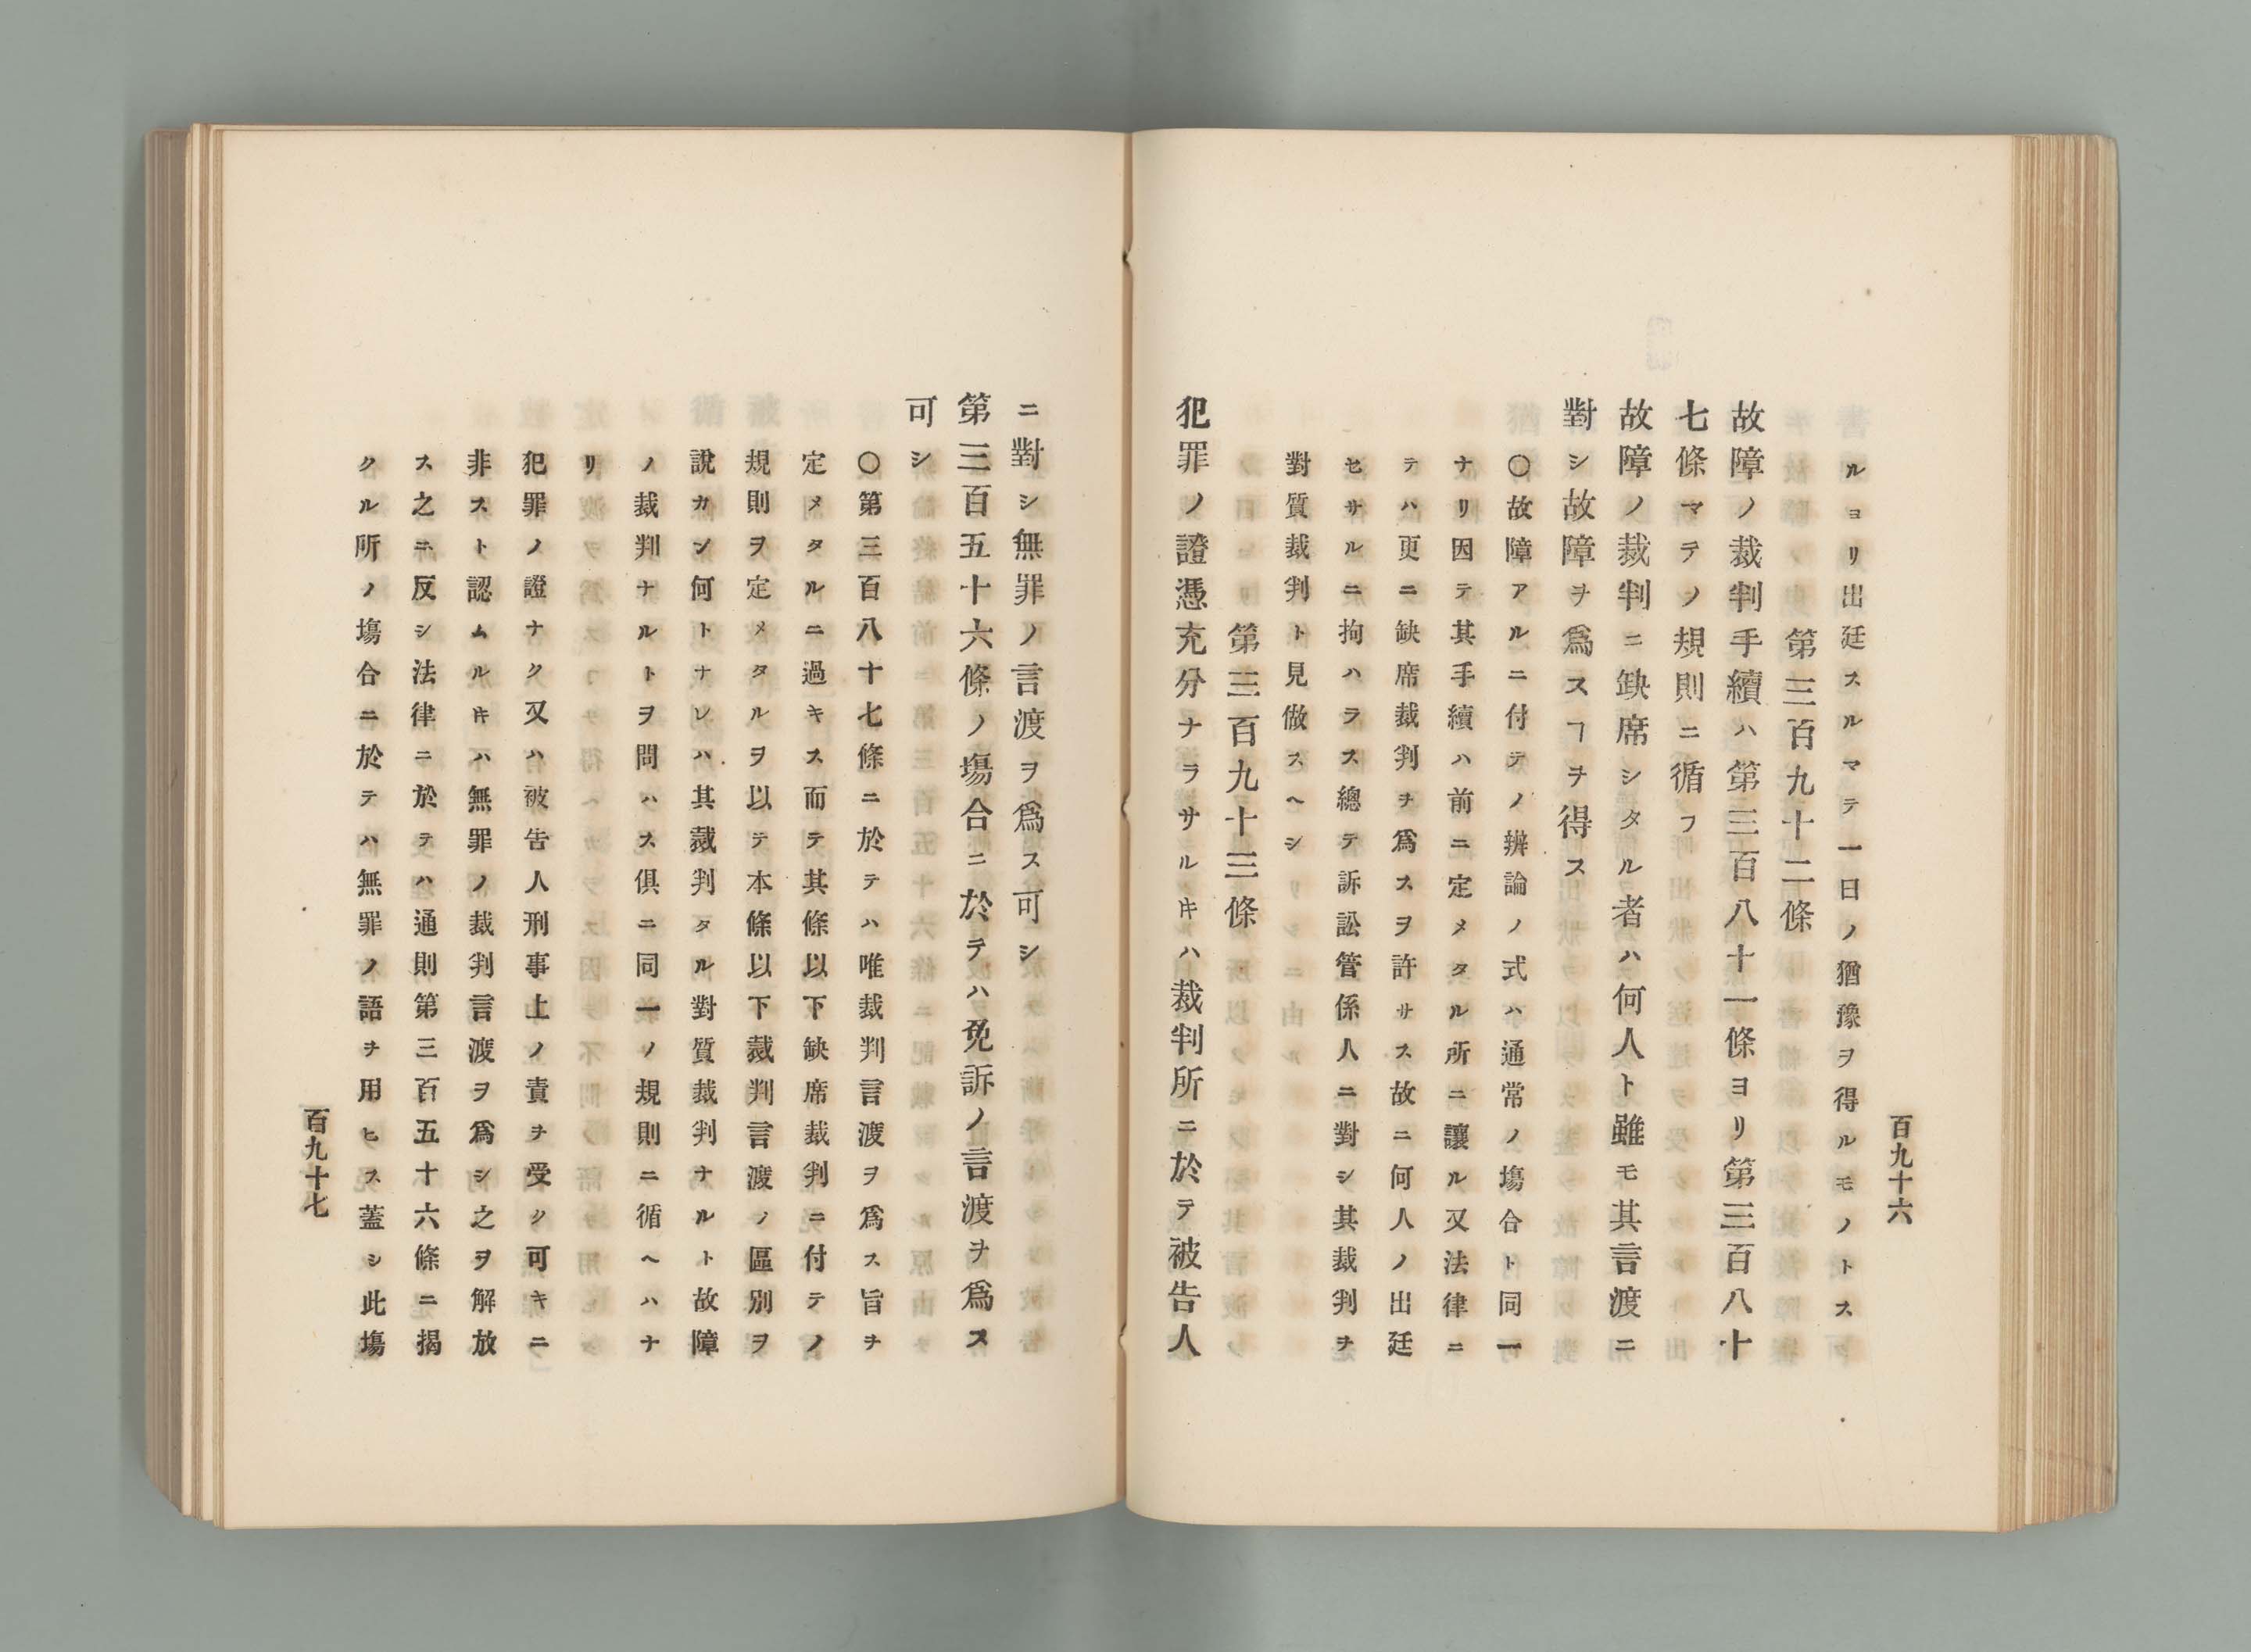 百九十六
ルヨリ出廷スルマテ一日ノ猶豫ヲ得ルモノトス
第三百九十二條
故障ノ裁判手續ハ第三百八十一條ヨリ第三百八十
七條マテノ規則ニ循フ
故障ノ裁判ニ缺席シタル者ハ何人ト雖モ其言渡ニ
對シ故障ヲ爲スヿヲ得ス
〇故障アルニ付テノ辨論ノ式ハ通常ノ塲合ト同一
ナリ因テ其手續ハ前ニ定メタル所ニ讓ル又法律ニ
テハ更ニ缺席裁判ヲ爲スヲ許サス故ニ何人ノ出廷
セサルニ拘ハラス總テ訴訟管係人ニ對シ其裁判ヲ
對質裁判ト見做スヘシ
第三百九十三條
犯罪ノ證憑充分ナラサルキハ裁判所ニ於テ被告人
ニ對シ無罪ノ言渡ヲ爲ス可シ
第三百五十六條ノ塲合ニ於テハ免訴ノ言渡ヲ爲ス
可シ
〇第三百八十七條ニ於テハ唯裁判言渡ヲ爲ス旨ヲ
定メタルニ過キス而テ其條以下缺席裁判ニ付テノ
規則ヲ定メタルヲ以テ本條以下裁判言渡ノ區別ヲ
說カン何トナレハ其裁判タル對質裁判ナルト故障
ノ裁判ナルトヲ問ハス俱ニ同一ノ規則ニ循ヘハナ
リ
犯罪ノ證ナク又ハ被告人刑事上ノ責ヲ受ク可キニ
非スト認ムルキハ無罪ノ裁判言渡ヲ爲シ之ヲ解放
ス之ニ反シ法律ニ於テハ通則第三百五十六條ニ揭
クル所ノ塲合ニ於テハ無罪ノ語ヲ用ヒス蓋シ此塲
百九十七